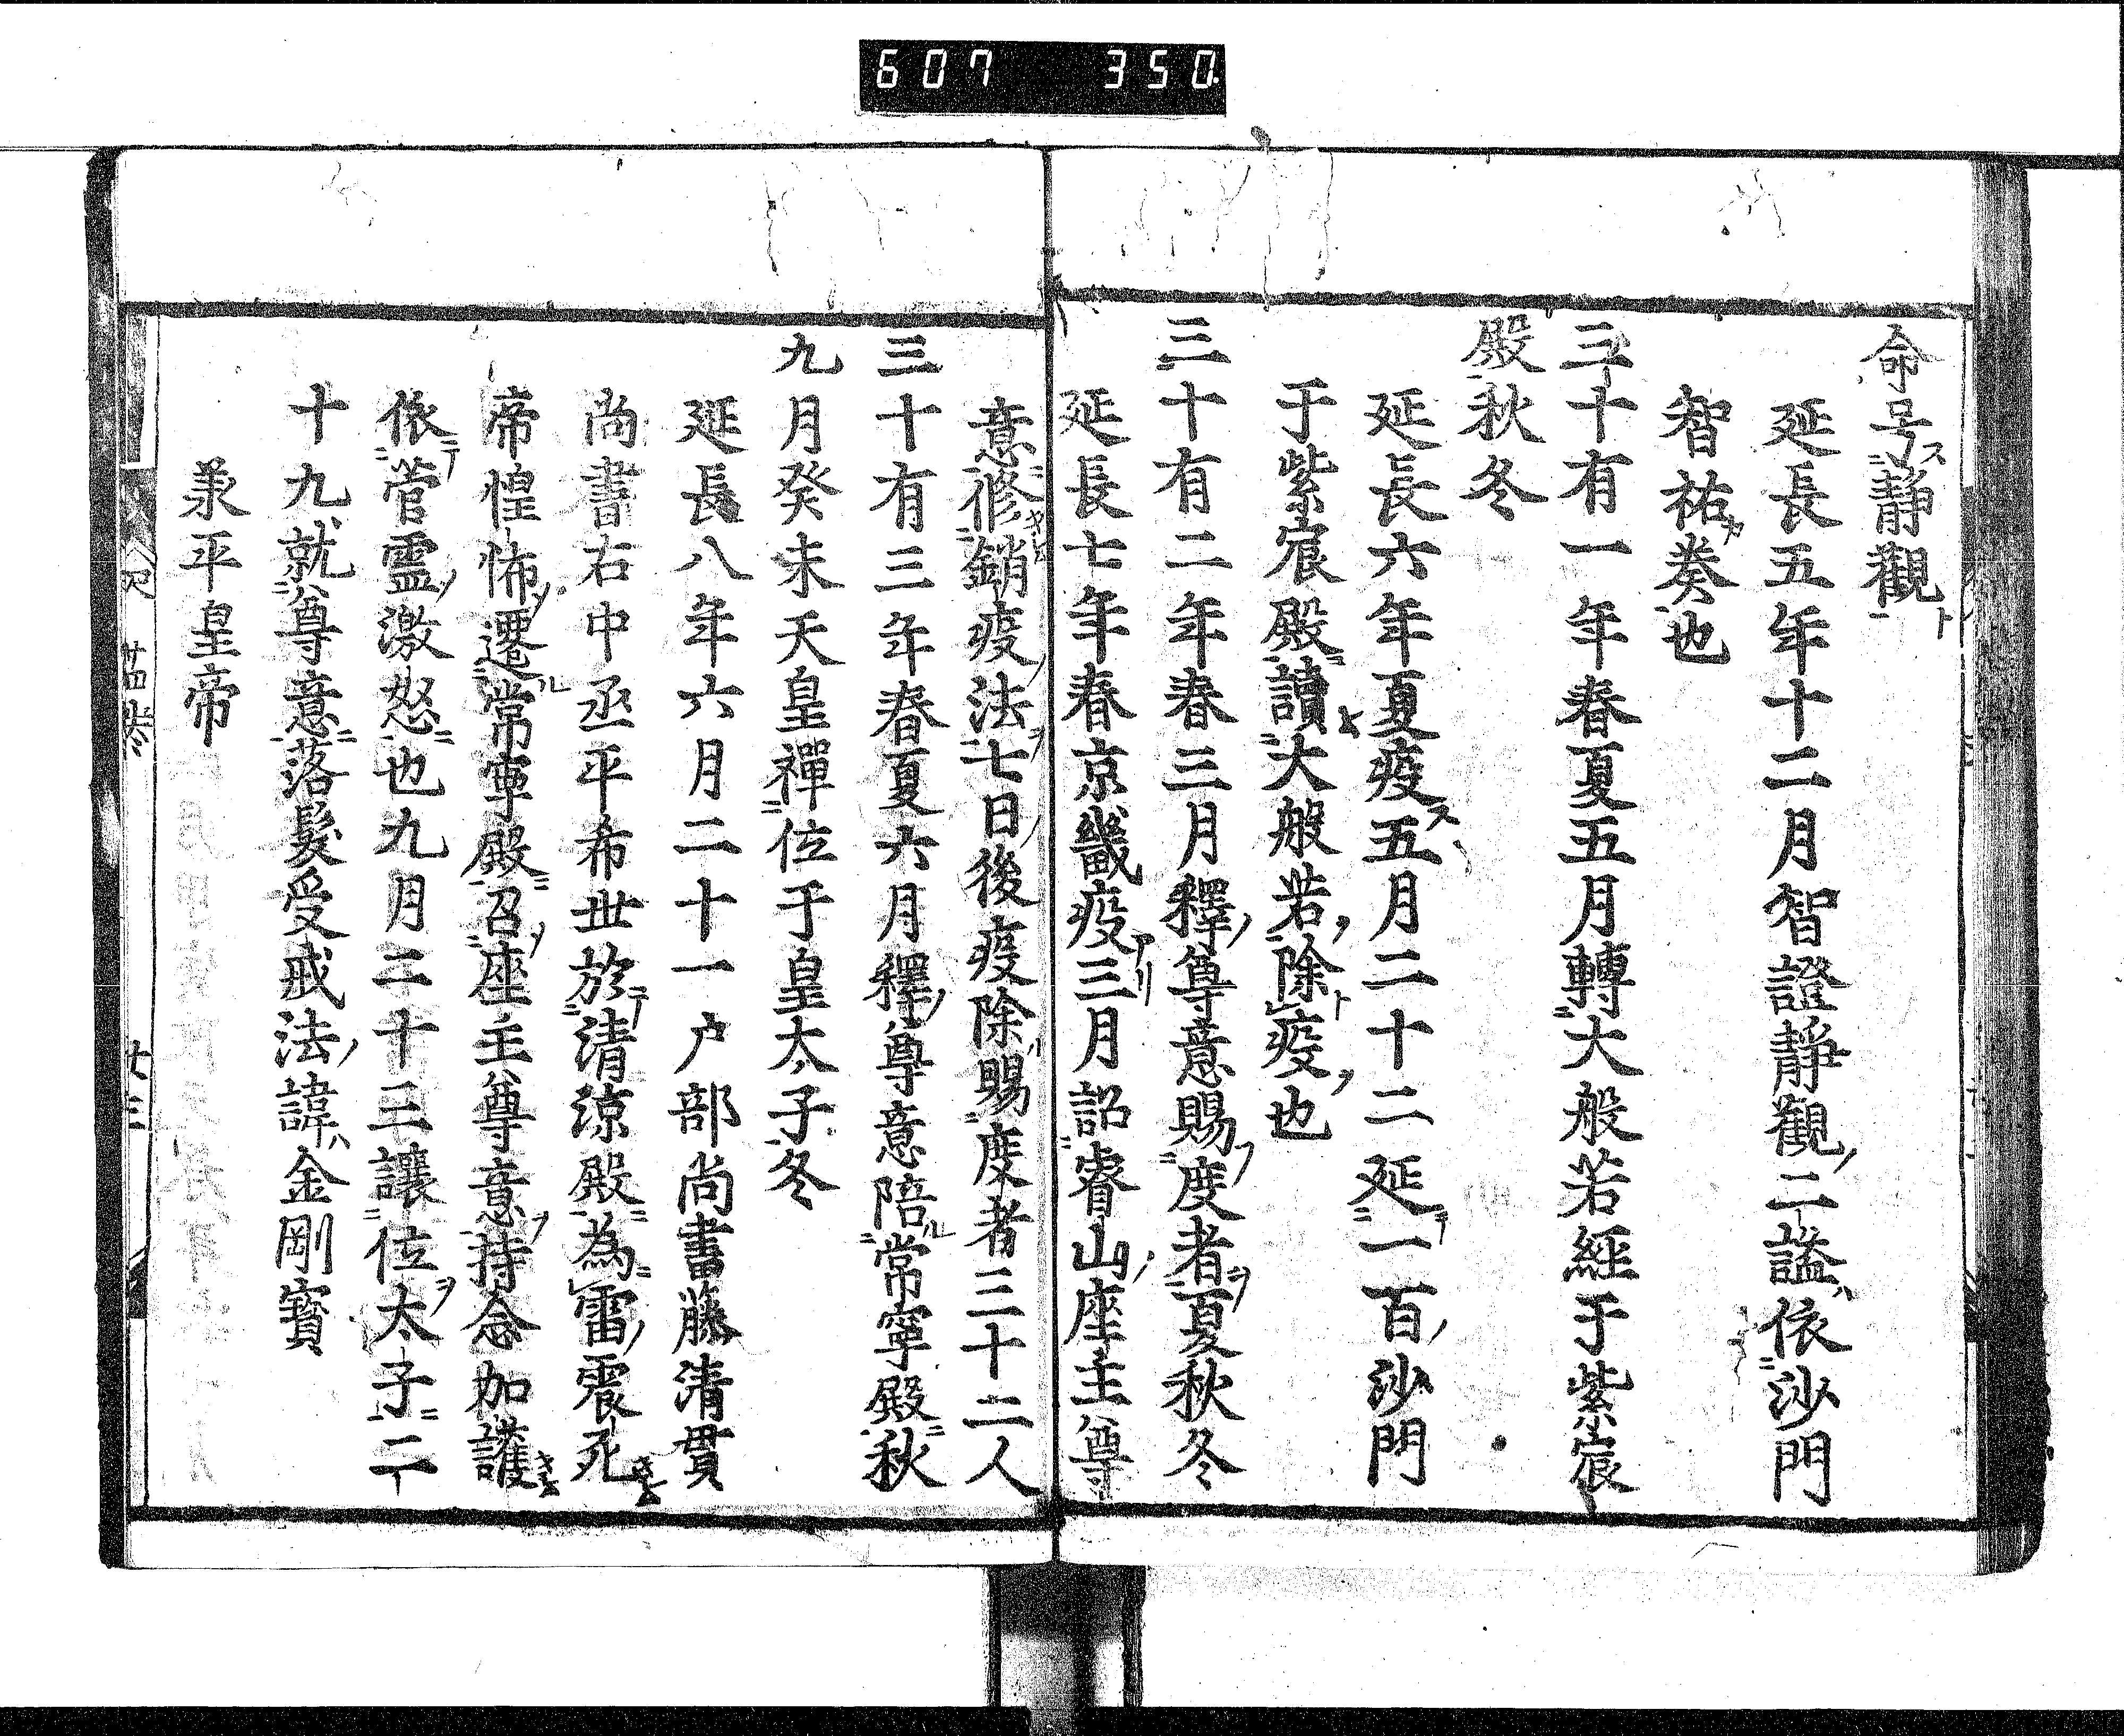 607 350
命号静觀
延長五年十二月智證静觀二謚依沙門
智祐奏也
三十有一年春夏五月轉大般若經于紫宸
殿秋冬
延長六年夏疫五月二十二延一百沙門
于紫宸殿讀大般若除疫也
三十有二年春三月釋尊意賜度者夏秋冬
延長七年春京畿疫三月詔睿山座主尊
意修銷疫法七日後疫除賜度者三十二人
三十有三年春夏六月釋尊意陪常寧殿秋
九月癸未天皇禪位于皇太子冬
延長八年六月二十一户部尚書藤清貫
尚書右中丞平希世於清涼殿為雷震死
帝惶怖遷常寧殿召座主尊意持念加護
依菅靈激怒也九月二十三讓位太子二
十九就尊意落髮受戒法諱金剛寶
羕平皇帝